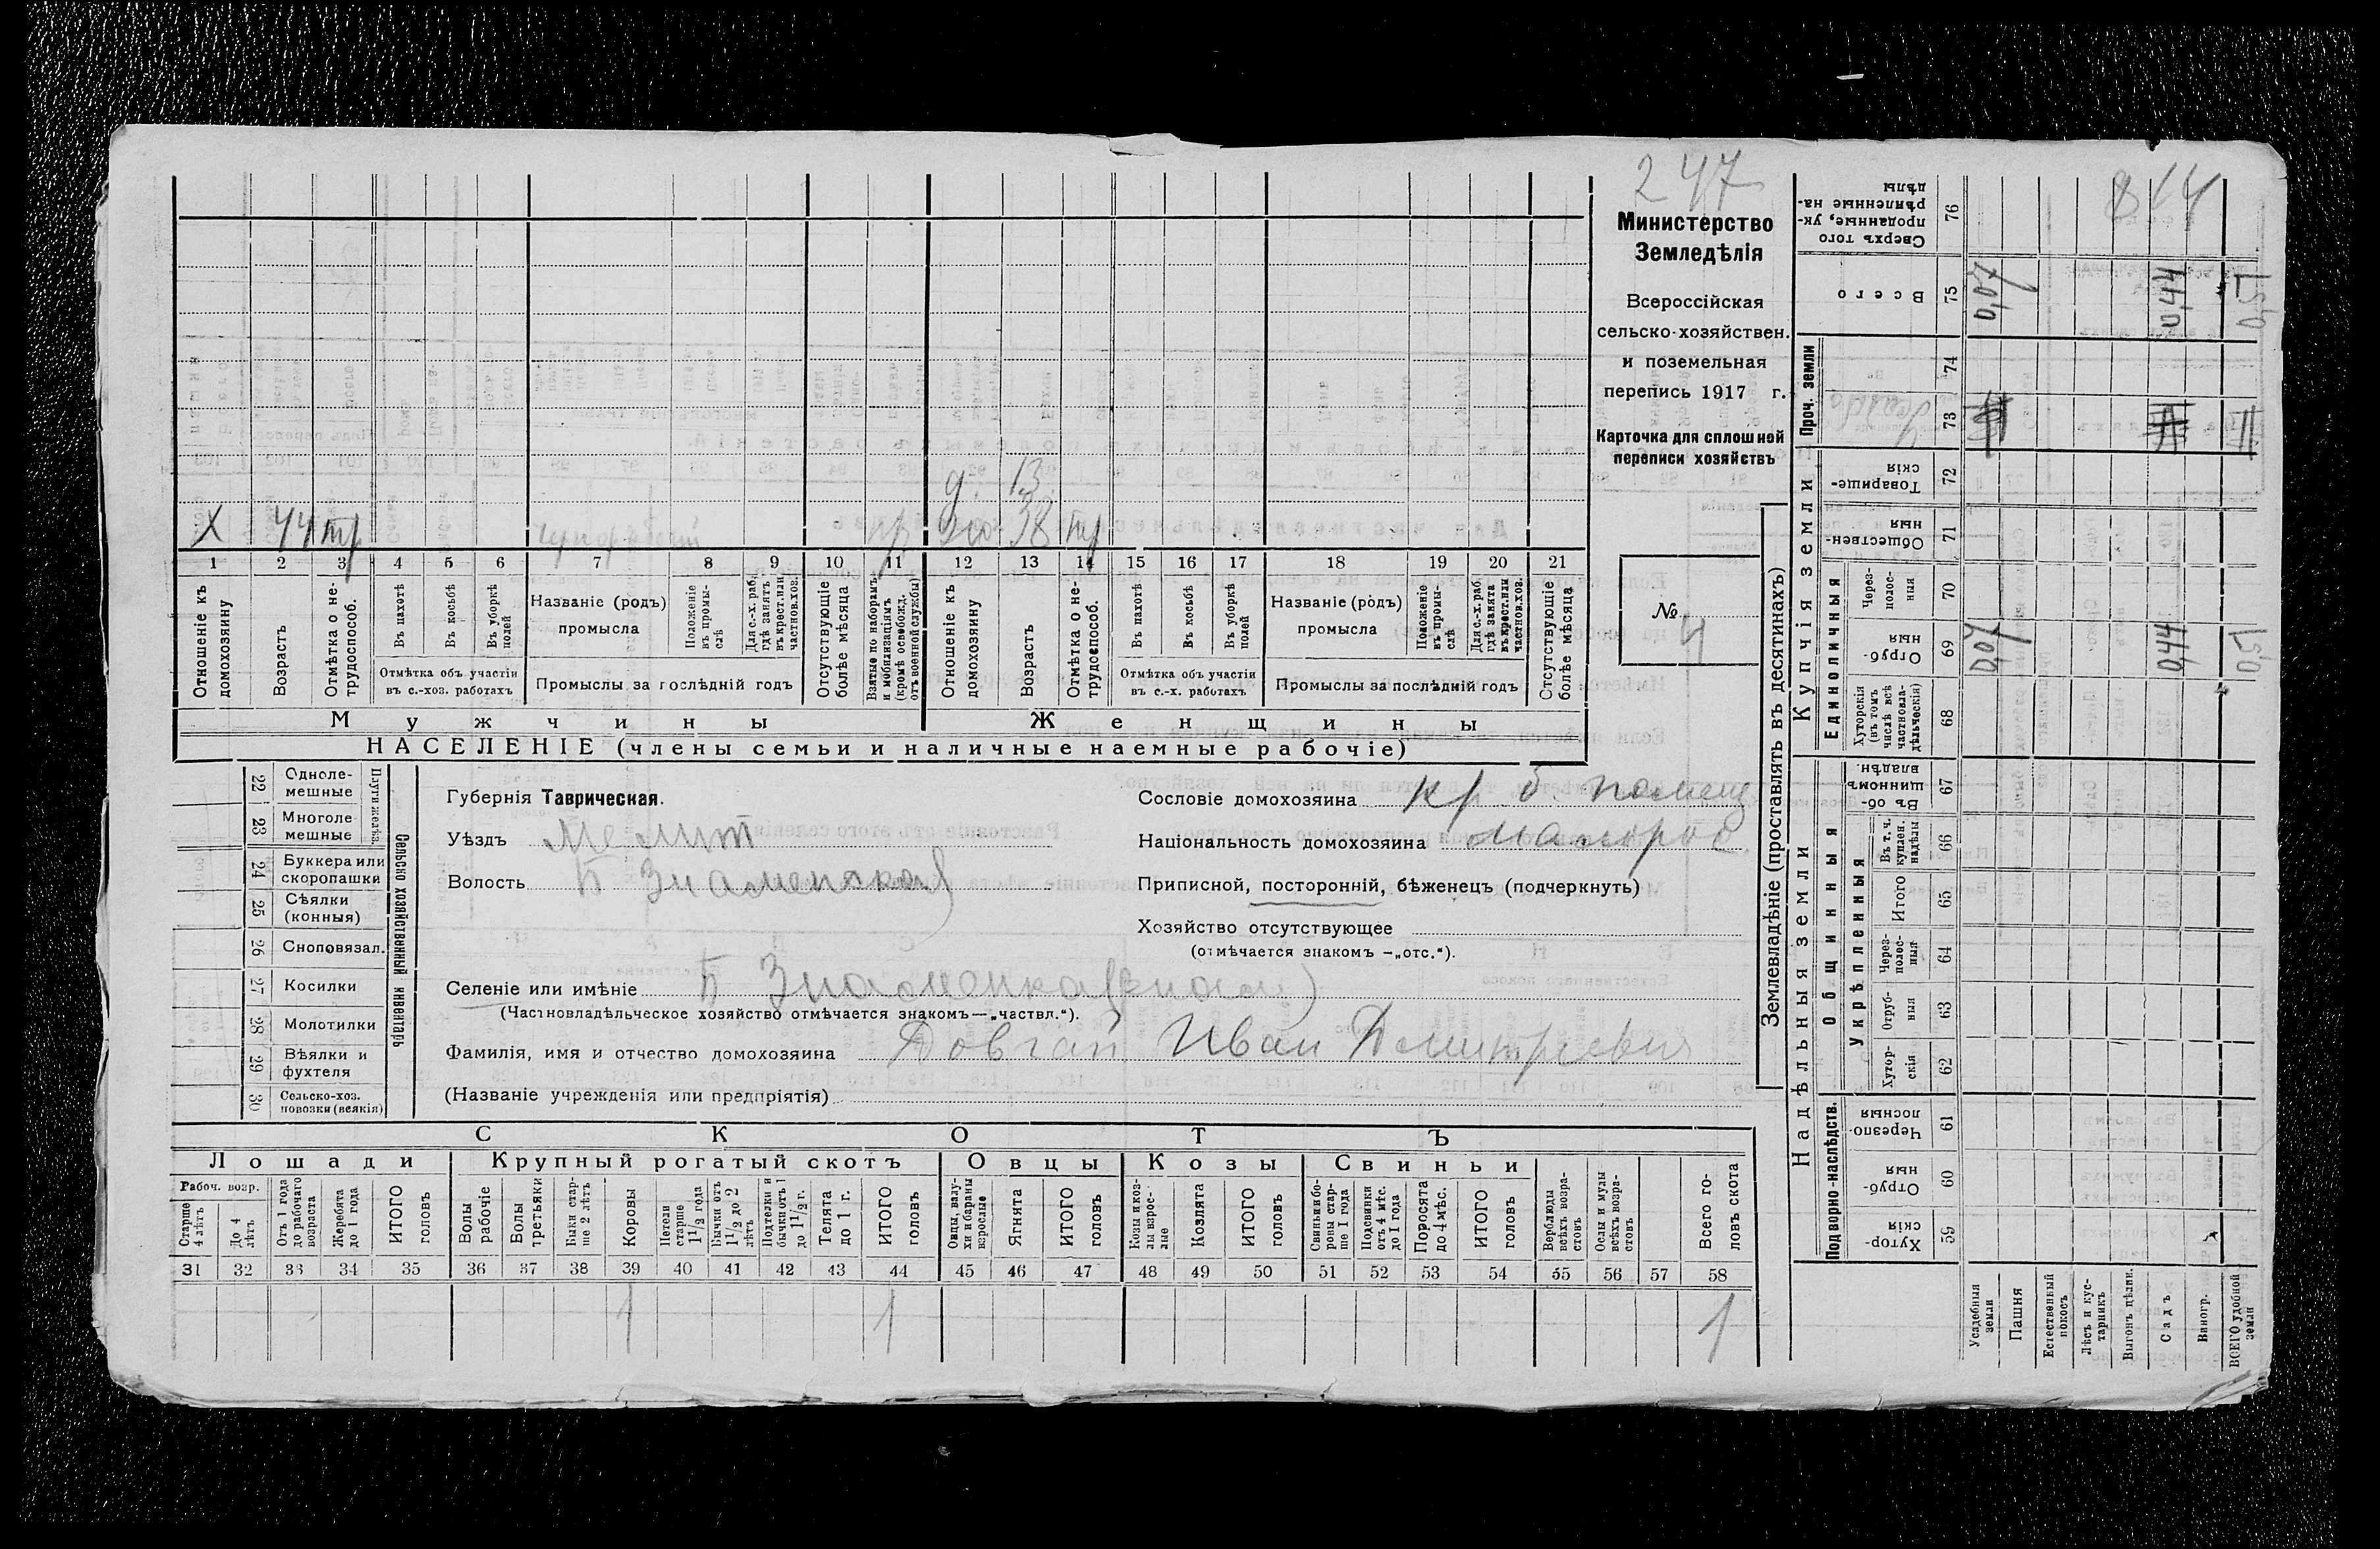 247
Министерство
Земледѣлія
Всероссійская
сельско-хозяйствен.
и поземельная
перепись 1917 г.
Карточка для сплошной
переписи хозяйствъ
№ 4
д. 13
Х 44 тр чернораб пр жо 38 тр
1 2 3 4 5 6 7 8 9 10 11 12 13 14 15 16 17 18 19 20 21
Отношеніе къ домохозяину
Возрастъ
Отмѣтка о не-трудоспособ.
Въ пахотѣ
Въ косьбѣ
Въ уборкѣ полей
Отмѣтка объ участіи
въ с.-хоз. работахъ
Названіе (родъ)
промысла
Положеніе въ промы-слѣ
Для с.-х. раб. гдѣ занятъ въ крест. или частнов. хоз.
Промыслы за послѣдній годъ
Отсутствующіе болѣе мѣсяца
Взятые по наборамъ и мобилизаціямъ (кромѣ освобожд. отъ военной службы)
Отношеніе къ домохозяину
Возрастъ
Отмѣтка о не-трудоспособ.
Въ пахотѣ
Въ косьбѣ
Въ уборкѣ полей
Отмѣтка объ участіи
въ с.-х. работахъ
Названіе (родъ)
промысла
Положеніе въ промы-слѣ
Для с.-х. раб. гдѣ занята въ крест. или частнов. хоз.
Промыслы за послѣдній годъ
Отсутствующіе болѣе мѣсяца
Мужчины Женщины
НАСЕЛЕНІЕ (члены семьи и наличные наемные рабочіе)
22 Одноле-мешные
23 Многоле-мешные
Плуги желѣз.
24 Буккера или скоропашки
25 Сѣялки (конныя)
26 Сноповязал.
27 Косилки
28 Молотилки
29 Вѣялки и фухтеля
30 Сельско-хоз. повозки (всякія)
Сельско хозяйственный инвентарь
Губернія Таврическая.
Уѣздъ Мелит
Волость Б Знаменская
Сословіе домохозяина кр. б. помещ
Національность домохозяина малорос
Приписной, посторонній, бѣженецъ (подчеркнуть)
Хозяйство отсутствующее
(отмѣчается знакомъ —„отс.“).
Селеніе или имѣніе Б Знаменка
(Частновладѣльческое хозяйство отмѣчается знакомъ—„частвл.“).
Фамилія, имя и отчество домохозяина Довгай Иван Дмитриевич
(Названіе учрежденія или предпріятія)
СКОТЪ
Лошади Крупный рогатый скотъ Овцы Козы Свиньи
Рабоч. возр.
Старше 4 лѣтъ
До 4 лѣтъ
Отъ 1 года до рабочаго возраста
Жеребята до 1 года
ИТОГО головъ
Волы рабочіе
Волы третьяки
Быки стар-ше 2 лѣтъ
Коровы
Нетели старше 1 1/2 года
Бычки отъ 1 1/2 до 2 лѣтъ
Подтелки и бычки отъ 1 до 1 1/2 г.
Телята до 1 г.
ИТОГО головъ
Овцы, валу-хи и бараны взрослые
Ягнята
ИТОГО головъ
Козы и коз-лы взрос-лые
Козлята
ИТОГО головъ
Свиньи и бо-ровы стар-ше 1 года
Подсвинки отъ 4 мѣс. до 1 года
Поросята до 4 мѣс.
ИТОГО головъ
Верблюды всѣхъ возра-стовъ
Ослы и мулы всѣхъ возра-стовъ
Всего го-ловъ скота
31 32 33 34 35 36 37 38 39 40 41 42 43 44 45 46 47 48 49 50 51 52 53 54 55 56 57 58
1 1 1
Землевладѣніе (проставлять въ десятинахъ)
Надѣльныя земли
Купчія земли
Проч. земли
Подворно-наслѣдств.
Общинныя
Укрѣпленныя
Единоличныя
Сверхъ того проданные, ук-рѣпленные на-дѣлы 76 814
Всего 75 0,07 0,44 0,51
74
73
Товарище-скія 72
Обществен-ныя 71
Через-полос-ныя 70
Отруб-ныя 69 0,07 0,44 0,51
Хуторскія (въ томъ числѣ всѣ частновла-дѣльческія) 68
Въ об-щинномъ владѣн. 67
Въ т. ч. куплен. надѣлы 66
Итого 65
Через-полос-ныя 64
Отруб-ныя 63
Хутор-скія 62
Черезпо-лосныя 61
Отруб-ныя 60
Хутор-скія 59
Усадебныя земли
Пашня
Естественный покосъ
Лѣсъ и кус-тарникъ
Выгонъ цѣлин.
Садъ
Виногр.
ВСЕГО удобной земли